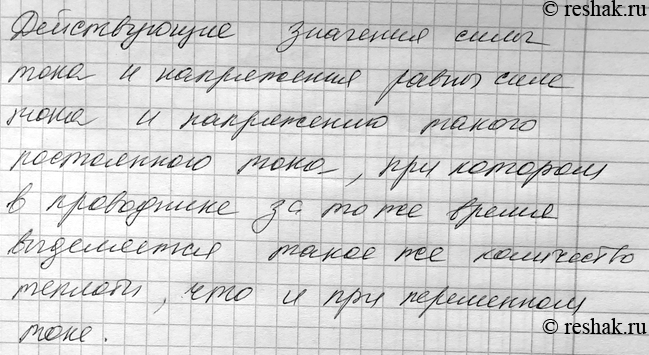 reshak.ru
Действующие значения силы
тока и напряжения равны силе
тока и напряжению такого
постоянного тока, при котором
в проводнике за то же время
выделяется такое же количество
теплоты, что и при переменном
токе.
reshak.ru